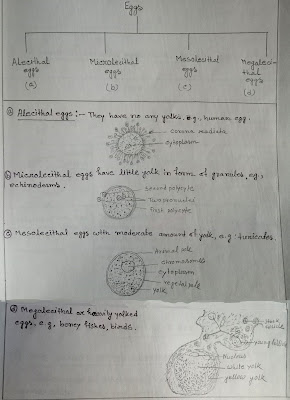 Eggs
Alecithal
eggs
(a)
Microlecithal
eggs
(b)
Mesolecithal
eggs
(c)
Megaleci-
thal
eggs
(d)
ⓐ Alecithal eggs :- They have no any yolks. e.g., human egg.
corona radiata
cytoplasm
ⓑ Microlecithal eggs have little yolk in form of granules, eg;
echinoderms.
second polocyte
first polocyte
③ Mesolecithal eggs with moderate amount of yolk, e.g. tunicates.
Animal pole
chromosomes
cytoplasm
vegetal pole
yolk
ⓓ Megalecithal or heavily yolked
eggs, e.g., boney fishes, birds.
young
Nucleus
white yolk
yellow yolk